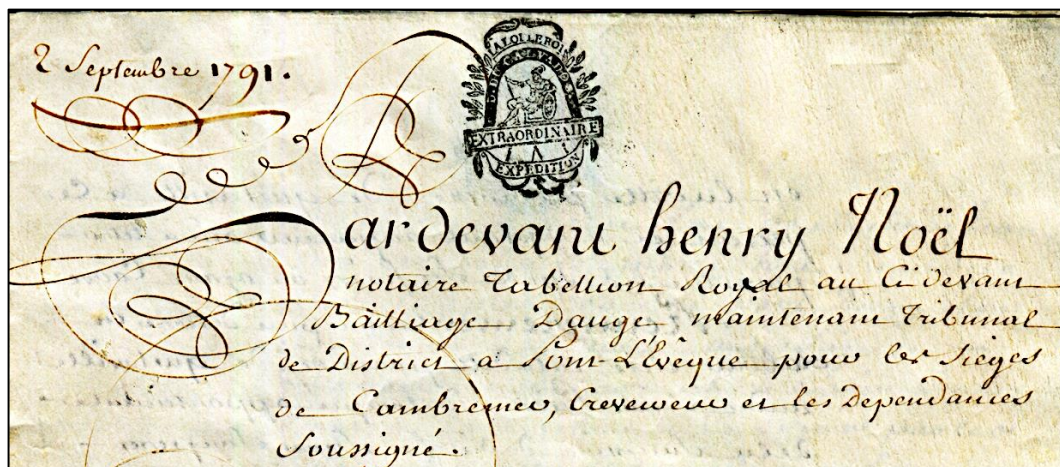 2 Septembre 1791.
LA LOI LE ROI
D. DU CALVADOS
EXTRAORDINAIRE
EXPEDITION
Pardevant henry Noël
notaire Tabellion Royal au Ci devant
Bailliage Dauge maintenant Tribunal
de District a Pont-L'Evêque pour les sièges
de Cambremer, Crevecoeur et les dependances
Soussigné.